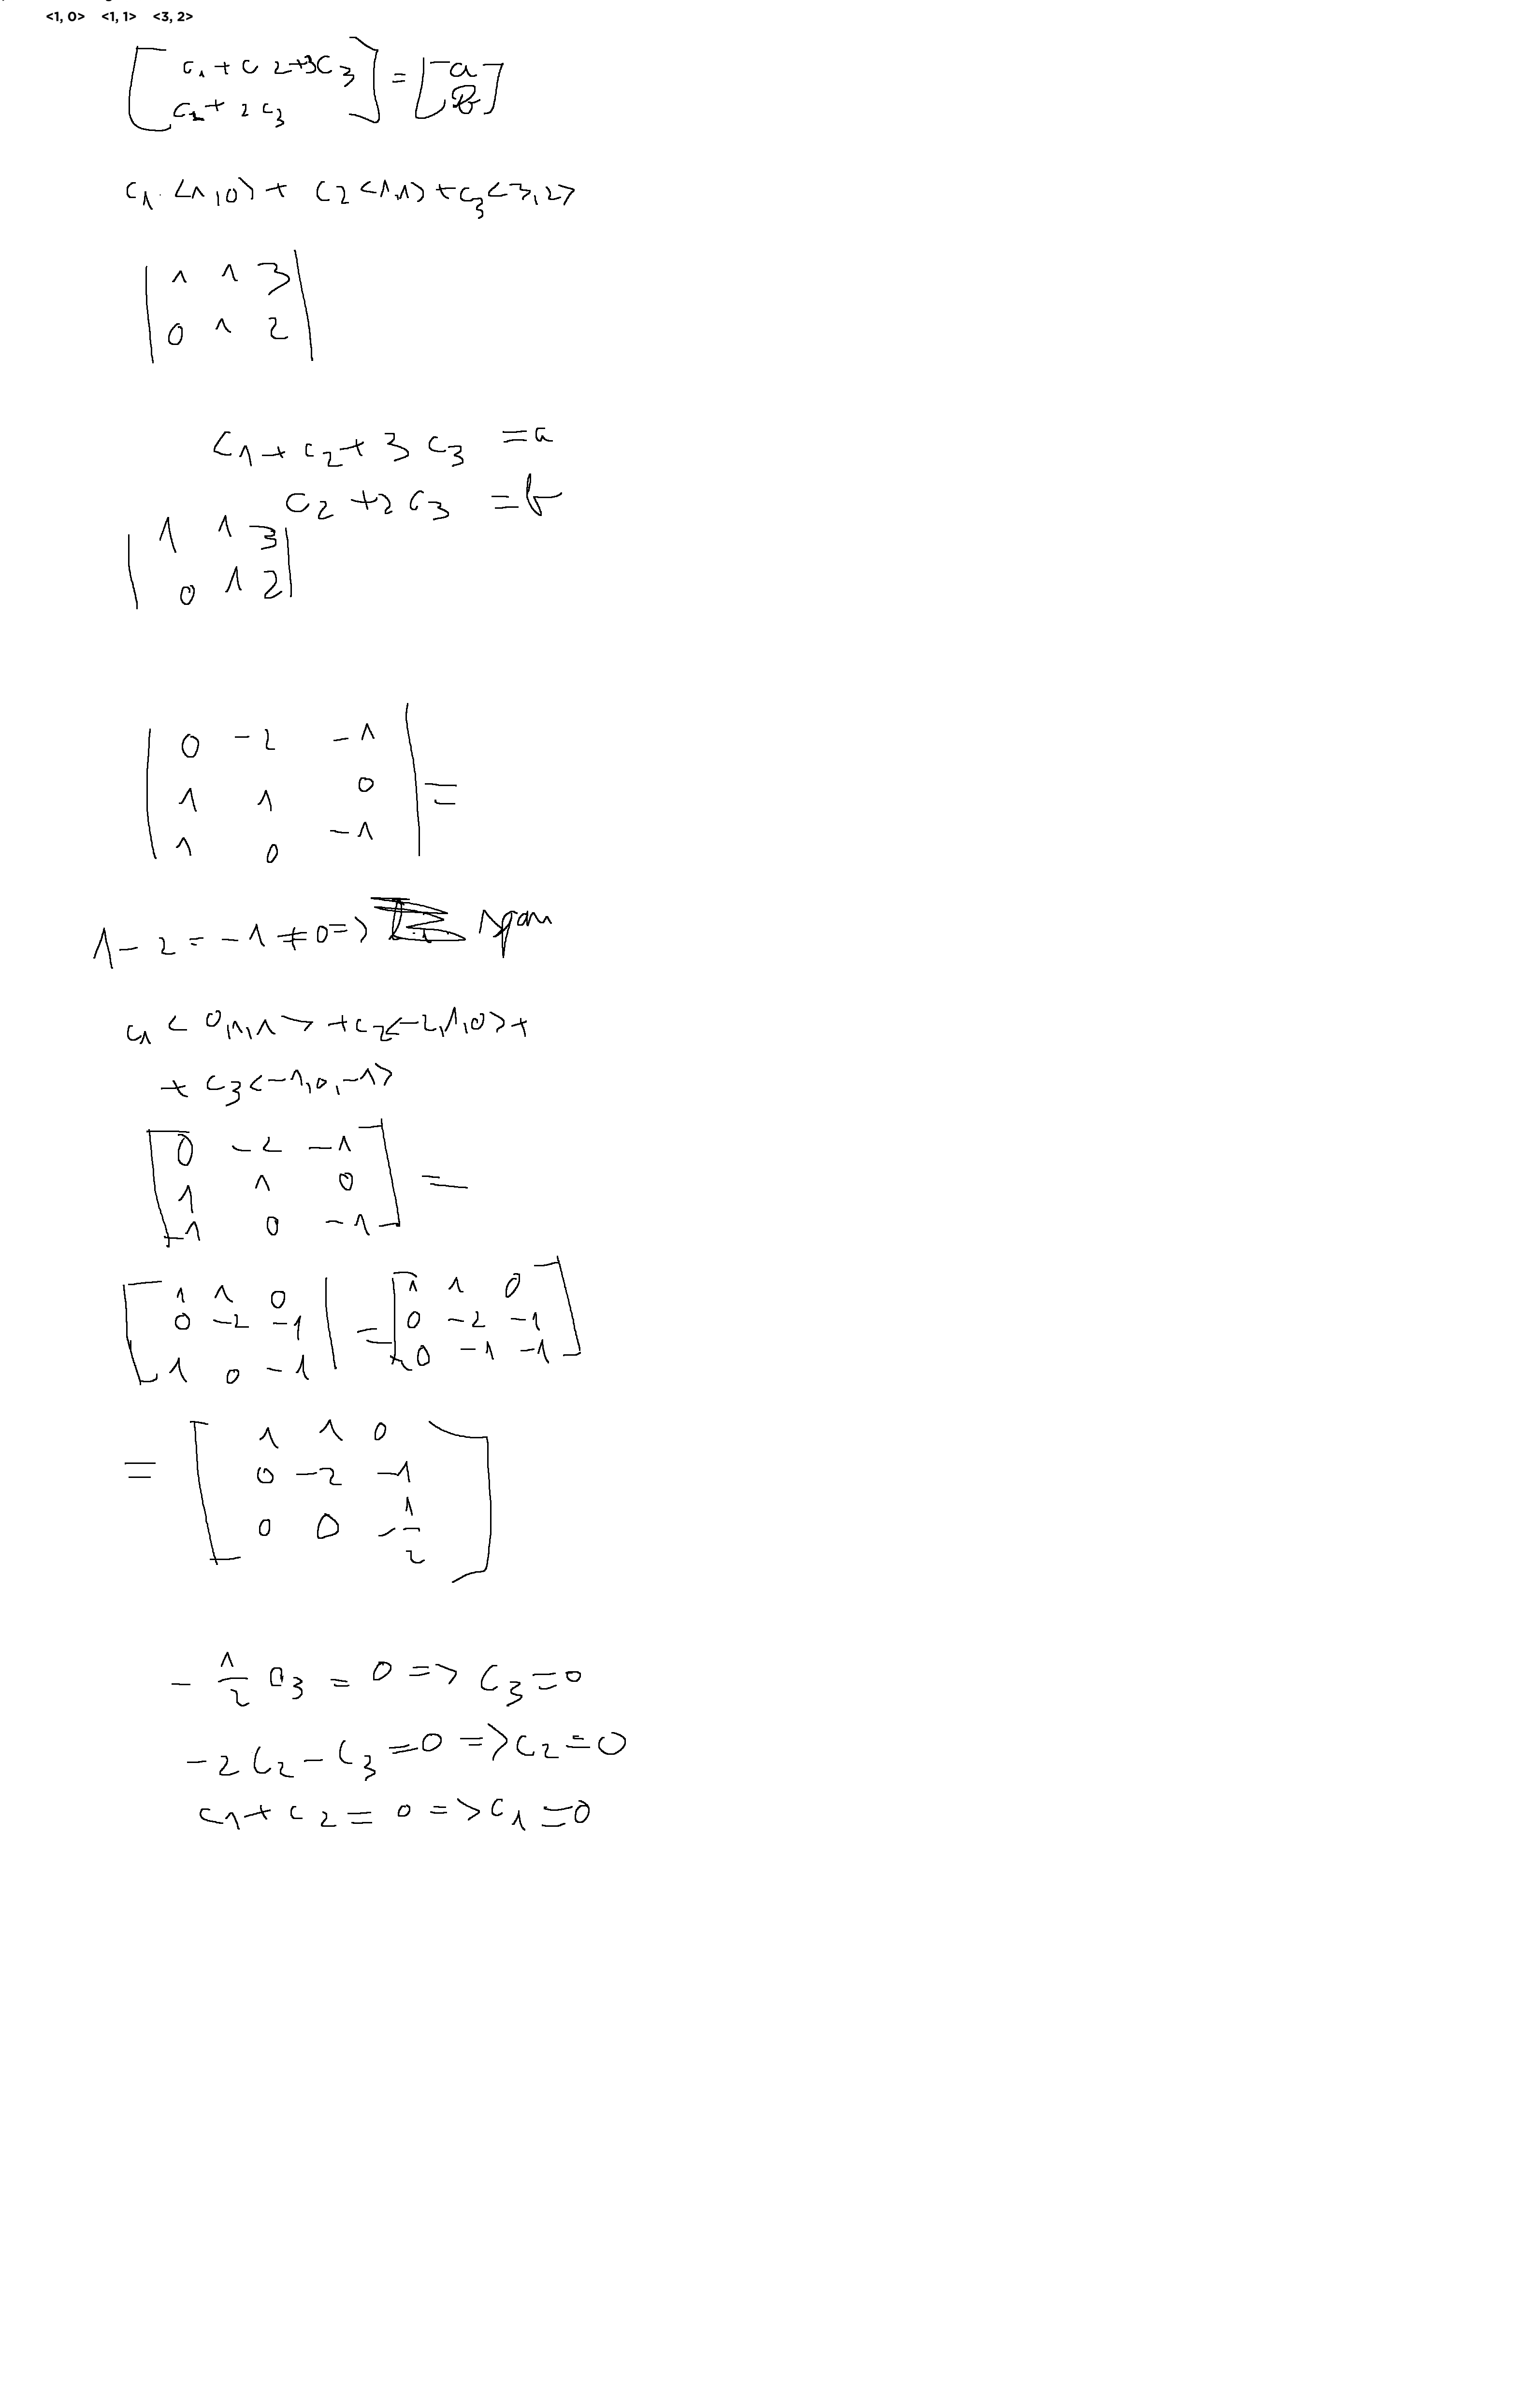 <1, 0> <1, 1> <3, 2>
[c1 + c2 + 3c3] = [a]
[c2 + 2c3] [b]
c1 · <1,0> + c2<1,1> + c3<3,2>
| 1 1 3 |
| 0 1 2 |
c1 + c2 + 3c3 = a
c2 + 2c3 = b
| 1 1 3 |
| 0 1 2 |
| 0 -2 -1 |
| 1 1 0 | =
| 1 0 -1 |
1 - 2 = -1 ≠ 0 => span
c1 <0,1,1> + c2<-2,1,0> +
+ c3<-1,0,-1>
[ 0 -2 -1 ]
[ 1 1 0 ] =
[ 1 0 -1 ]
[ 1 1 0 | = [ 1 1 0 ]
[ 0 -2 -1 | [ 0 -2 -1 ]
[ 1 0 -1 | [ 0 -1 -1 ]
[ 1 1 0 ]
= [ 0 -2 -1 ]
[ 0 0 -1/2 ]
- 1/2 c3 = 0 => c3 = 0
-2c2 - c3 = 0 => c2 = 0
c1 + c2 = 0 => c1 = 0